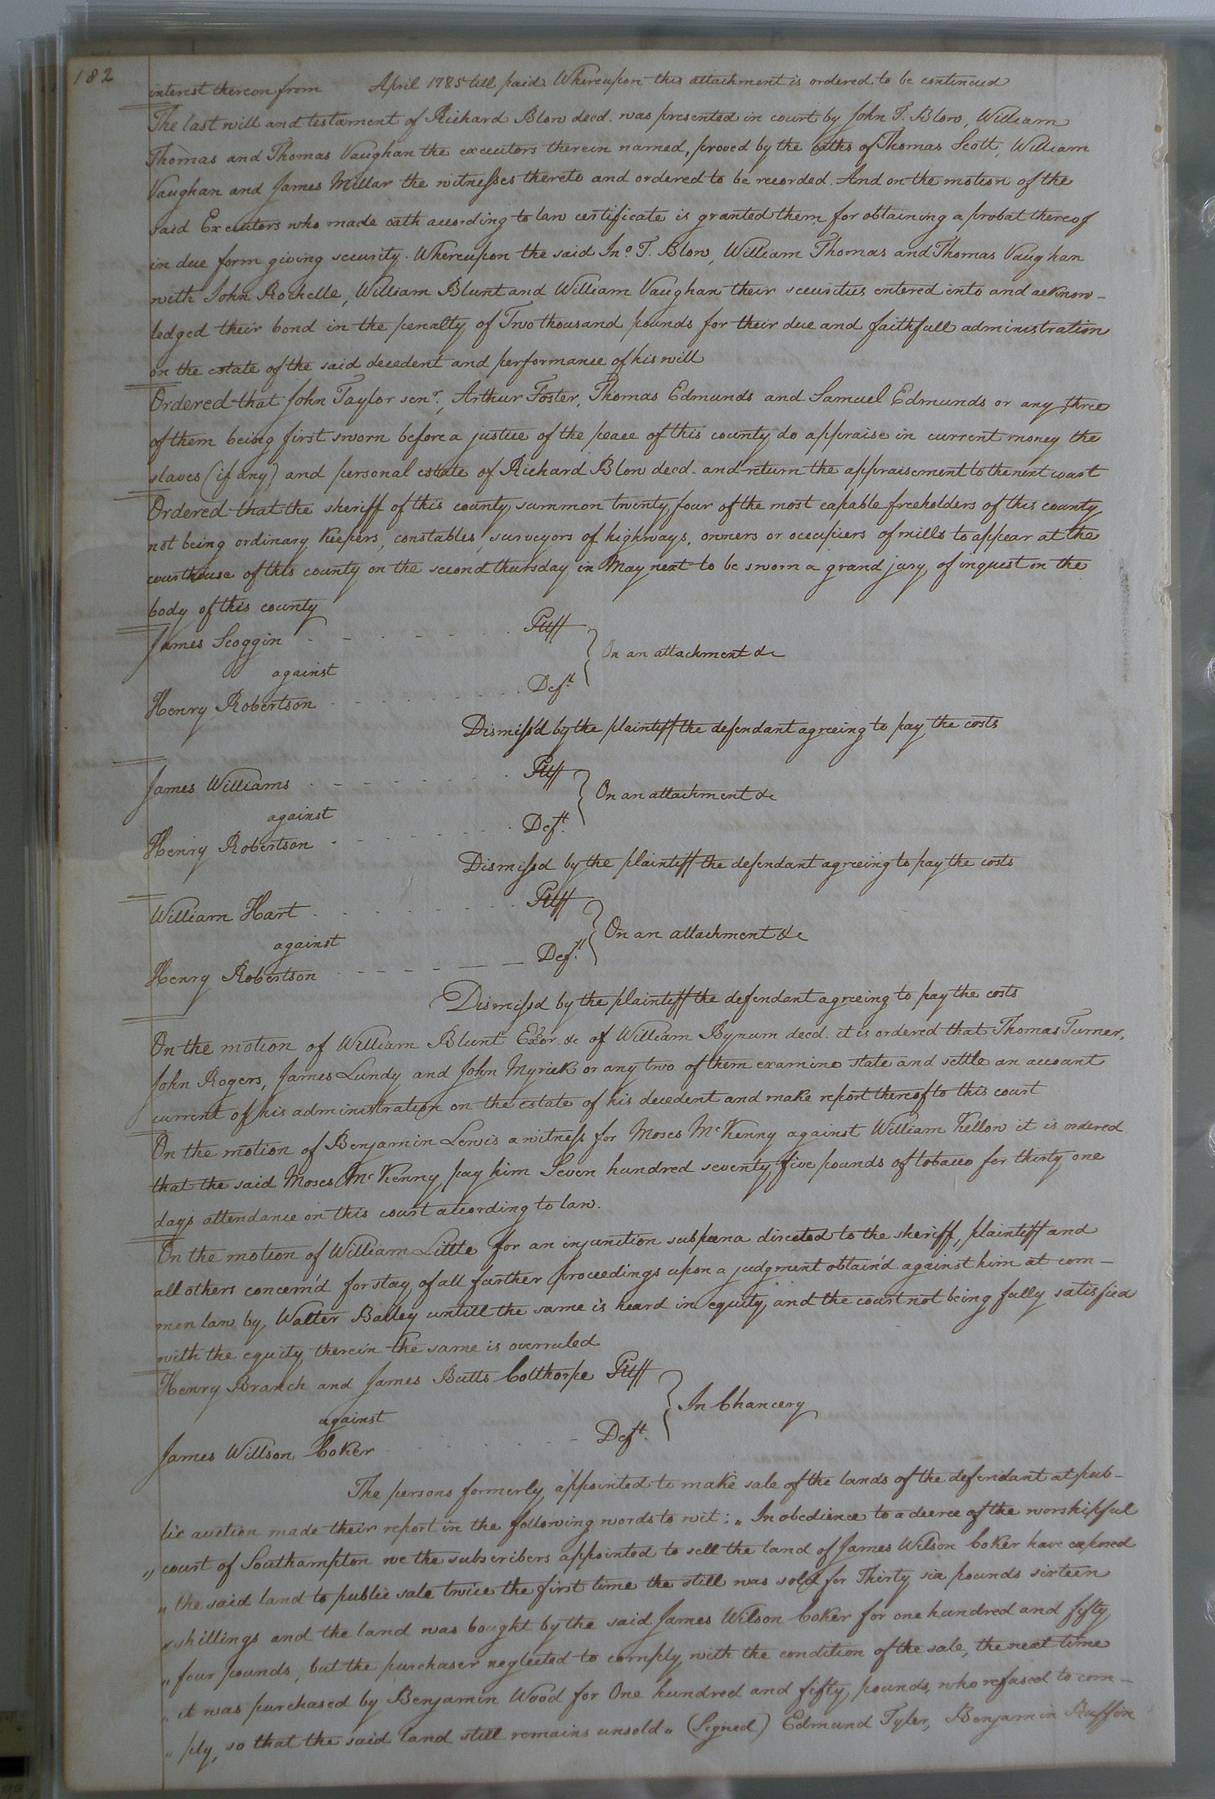 182
interest thereon from April 1785 till paid Whereupon this attachment is ordered to be continued
The last will and testament of Richard Blow decd. was presented in court by John T. Blow, William
Thomas and Thomas Vaughan the executors therein named, proved by the oaths of Thomas Scott, William
Vaughan and James Millar the witnesses thereto and ordered to be recorded. And on the motion of the
said Executors who made oath according to law certificate is granted them for obtaining a probat thereof
in due form giving security. Whereupon the said Jno. T. Blow, William Thomas and Thomas Vaughan
with John Rochelle, William Blunt and William Vaughan their securities entered into and acknow-
ledged their bond in the penalty of Two thousand pounds for their due and faithfull administration
on the estate of the said decedent and performance of his will
Ordered that John Taylor senr., Arthur Foster, Thomas Edmunds and Samuel Edmunds or any three
of them being first sworn before a justice of the peace of this county do appraise in current money the
slaves (if any) and personal estate of Richard Blow decd. and return the appraisement to the next court
Ordered that the sheriff of this county summon twenty four of the most capable freeholders of this county
not being ordinary keepers, constables, surveyors of highways, owners or occupiers of mills to appear at the
courthouse of this county on the second thursday in May next to be sworn a grand jury of inquest on the
body of this county
James Scoggin Pltff
against } On an attachment &c
Henry Robertson Deft.
Dismiss'd by the plaintiff the defendant agreeing to pay the costs
James Williams Pltff
against } On an attachment &c
Henry Robertson Deft.
Dismissd by the plaintiff the defendant agreeing to pay the costs
William Hart Pltff
against } On an attachment &c
Henry Robertson Deft.
Dismissd by the plaintiff the defendant agreeing to pay the costs
On the motion of William Blunt Exor. &c of William Bynum decd. it is ordered that Thomas Turner,
John Rogers, James Lundy and John Myrick or any two of them examine state and settle an account
current of his administration on the estate of his decedent and make report thereof to this court
On the motion of Benjamin Lewis a witness for Moses McKenny against William Kellow it is ordered
that the said Moses McKenny pay him Seven hundred seventy five pounds of tobacco for thirty one
days attendance on this court according to law.
On the motion of William Little for an injunction subpœna directed to the sheriff, plaintiff and
all others concern'd for stay of all further proceedings upon a judgment obtain'd against him at com-
mon law by Walter Bailey untill the same is heard in equity, and the court not being fully satisfied
with the equity therein the same is overruled
Henry Branch and James Butts Colthorpe Pltff
against } In Chancery
James Willson Coker Deft.
The persons formerly appointed to make sale of the lands of the defendant at pub-
lic auction made their report in the following words to wit: „ In obedience to a decree of the worshipful
„ court of Southampton we the subscribers appointed to sell the land of James Wilson Coker have exposed
„ the said land to public sale twice the first time the still was sold for Thirty six pounds sixteen
„ shillings and the land was bought by the said James Wilson Coker for one hundred and fifty
„ four pounds, but the purchaser neglected to comply with the condition of the sale, the next time
„ it was purchased by Benjamin Wood for One hundred and fifty pounds, who refused to com-
„ ply, so that the said land still remains unsold „ (Signed) Edmund Tyler, Benjamin Ruffin